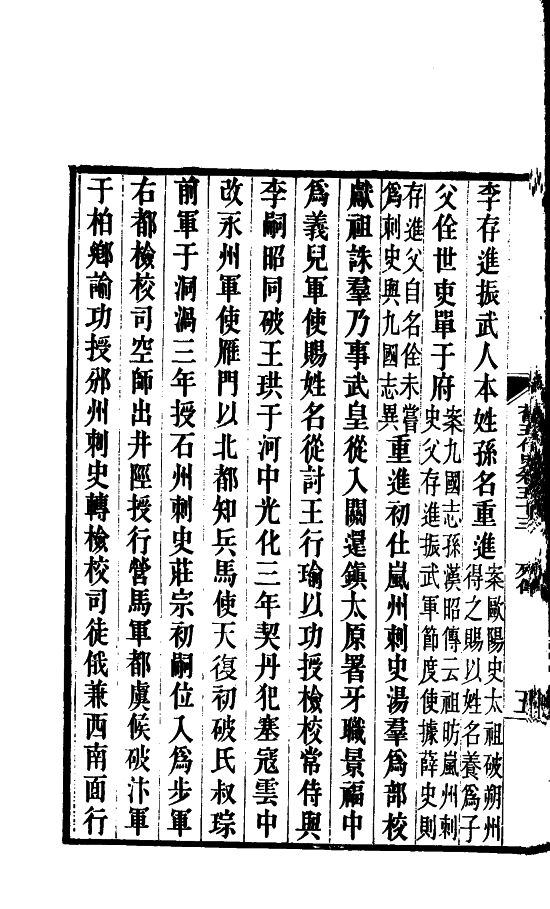 李存進振武人本姓孫名重進案歐陽史太祖破朔州得之賜以姓名養爲子
父佺世吏單于府案九國志孫漢昭傳云祖昉嵐州刺史父存進振武軍節度使據薛史則
存進父自名佺未嘗爲刺史與九國志異重進初仕嵐州刺史湯羣爲部校
獻祖誅羣乃事武皇從入關還鎮太原署牙職景福中
爲義兒軍使賜姓名從討王行瑜以功授檢校常侍與
李嗣昭同破王珙于河中光化三年契丹犯塞寇雲中
改永州軍使雁門以北都知兵馬使天復初破氏叔琮
前軍于洞渦三年授石州刺史莊宗初嗣位入爲步軍
右都檢校司空師出井陘授行營馬軍都虞候破汴軍
于柏鄉論功授邠州刺史轉檢校司徒俄兼西南面行
五十三